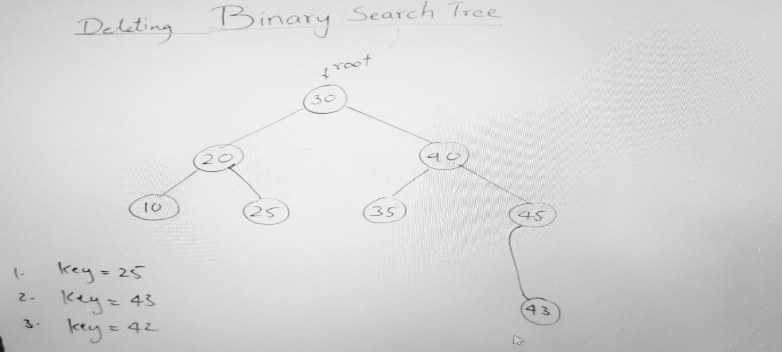 Deleting Binary Search Tree
↓ root
30
20 40
10 25 35 45
43
1. key = 25
2- key = 43
3. key = 42